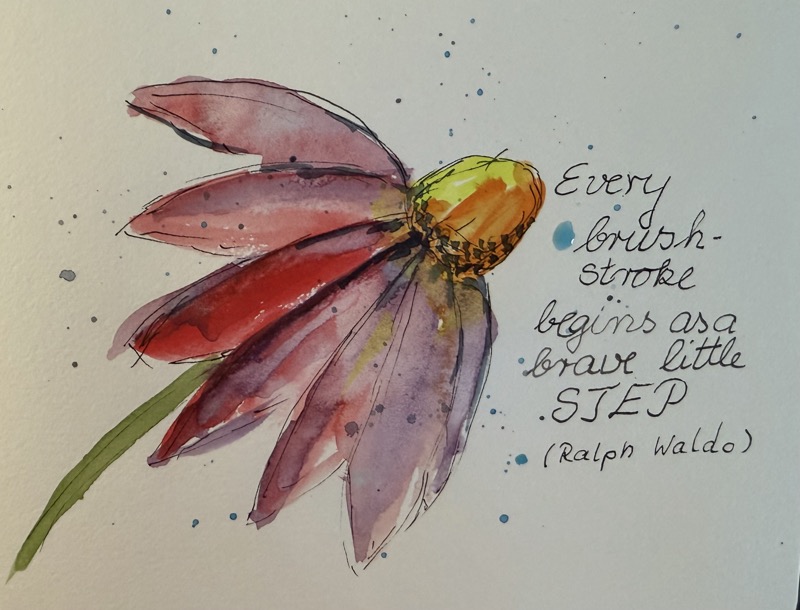 Every
brush-
stroke
begins as a
brave little
STEP
(Ralph Waldo)